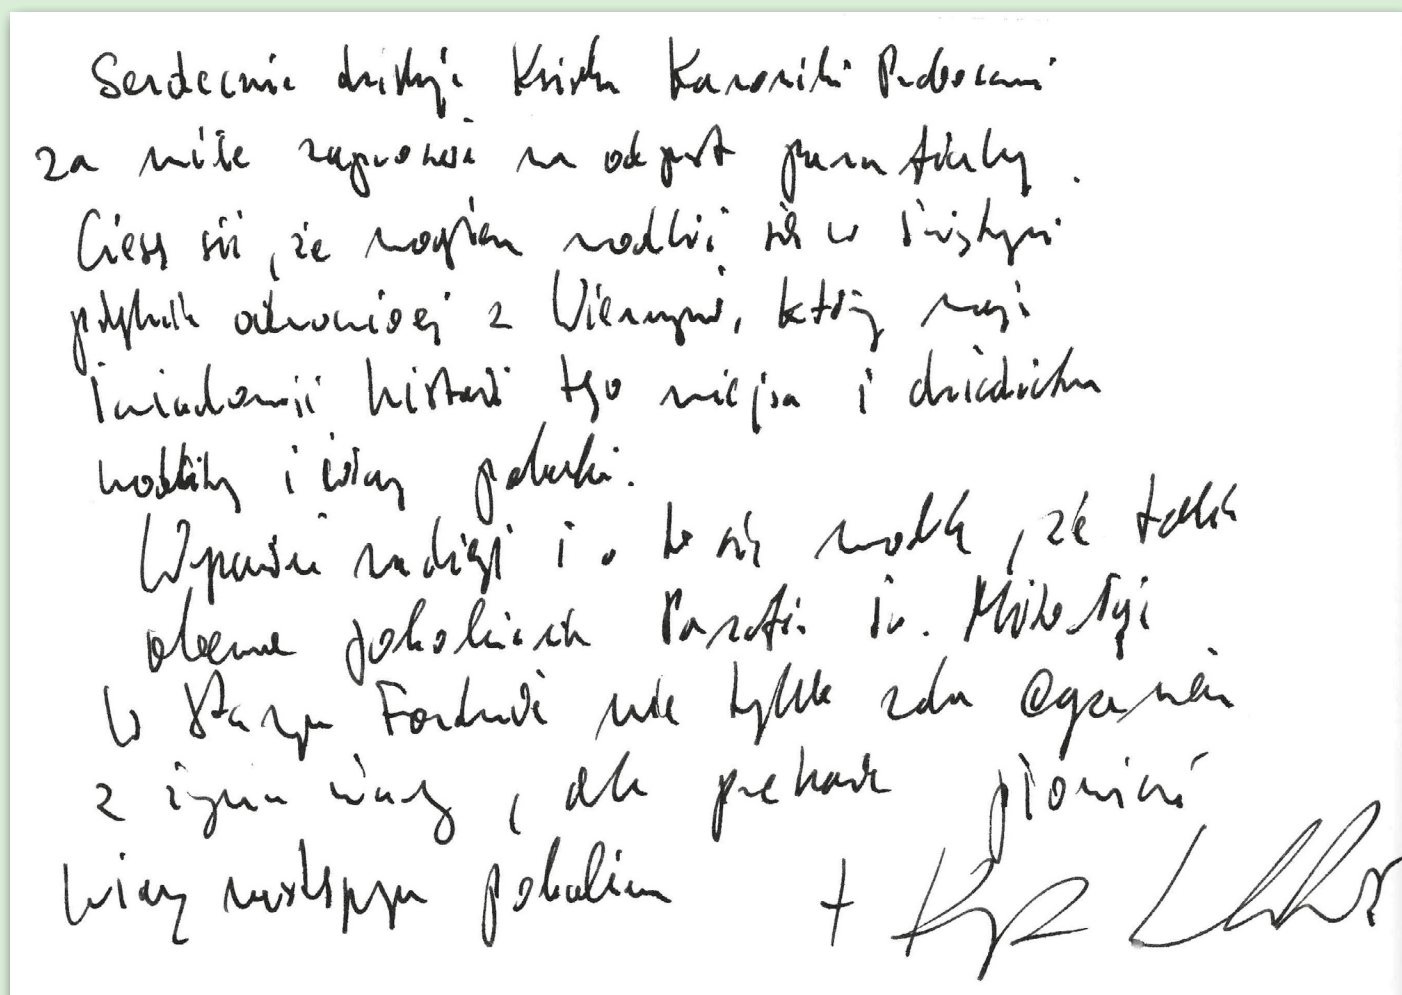 Serdecznie dziękuję Księdzu Kanonikowi Proboszczowi
za miłe zaproszenie na odpust parafialny.
Cieszę się, że mogłem modlić się w świątyni
pięknie odnowionej z Wiernymi, którzy mają
świadomość historii tego miejsca i dziedzictwa
modlitwy i wiary
Wyrażam nadzieję i o to się modlę, że także
obecne pokolenie Parafii św. Mikołaja
w Starym Fordonie nie tylko zda egzamin
z życia wiary, ale przekaże płomień
wiary następnym pokoleniom
+